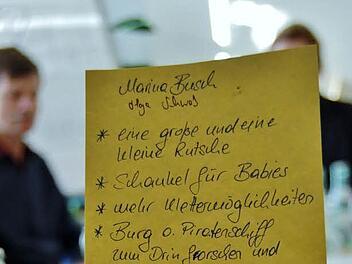 Marina Busch
Olga Schwob
* eine große und eine
kleine Rutsche
* Schaukel für Babies
* mehr Klettermöglichkeiten
* Burg o. Piratenschiff
zum Drin forschen und